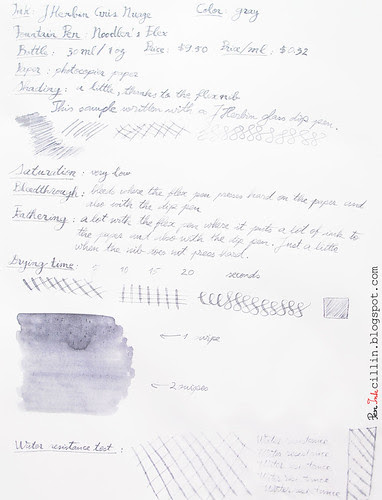 Ink: J Herbin Gris Nuage Color: gray
Fountain Pen: Noodler's Flex
Bottle: 30ml/1oz Price: $9.50 Price/ml: $0.32
Paper: photocopier paper
Shading: a little, thanks to the flex nib
This sample written with a J Herbin glass dip pen.
Saturation: very low
Bleedthrough: bleeds where the flex pen presses hard on the paper and
also with the dip pen
Feathering: a lot with the flex pen where it puts a lot of ink to
the paper and also with the dip pen. Just a little
when the nib does not press hard.
Drying time: 5 10 15 20 seconds
← 1 swipe
← 2 swipes
Water resistance test:
Water resistance
Water resistance
Water resistance
Water resistance
Water resistance
PenInkcillin.blogspot.com